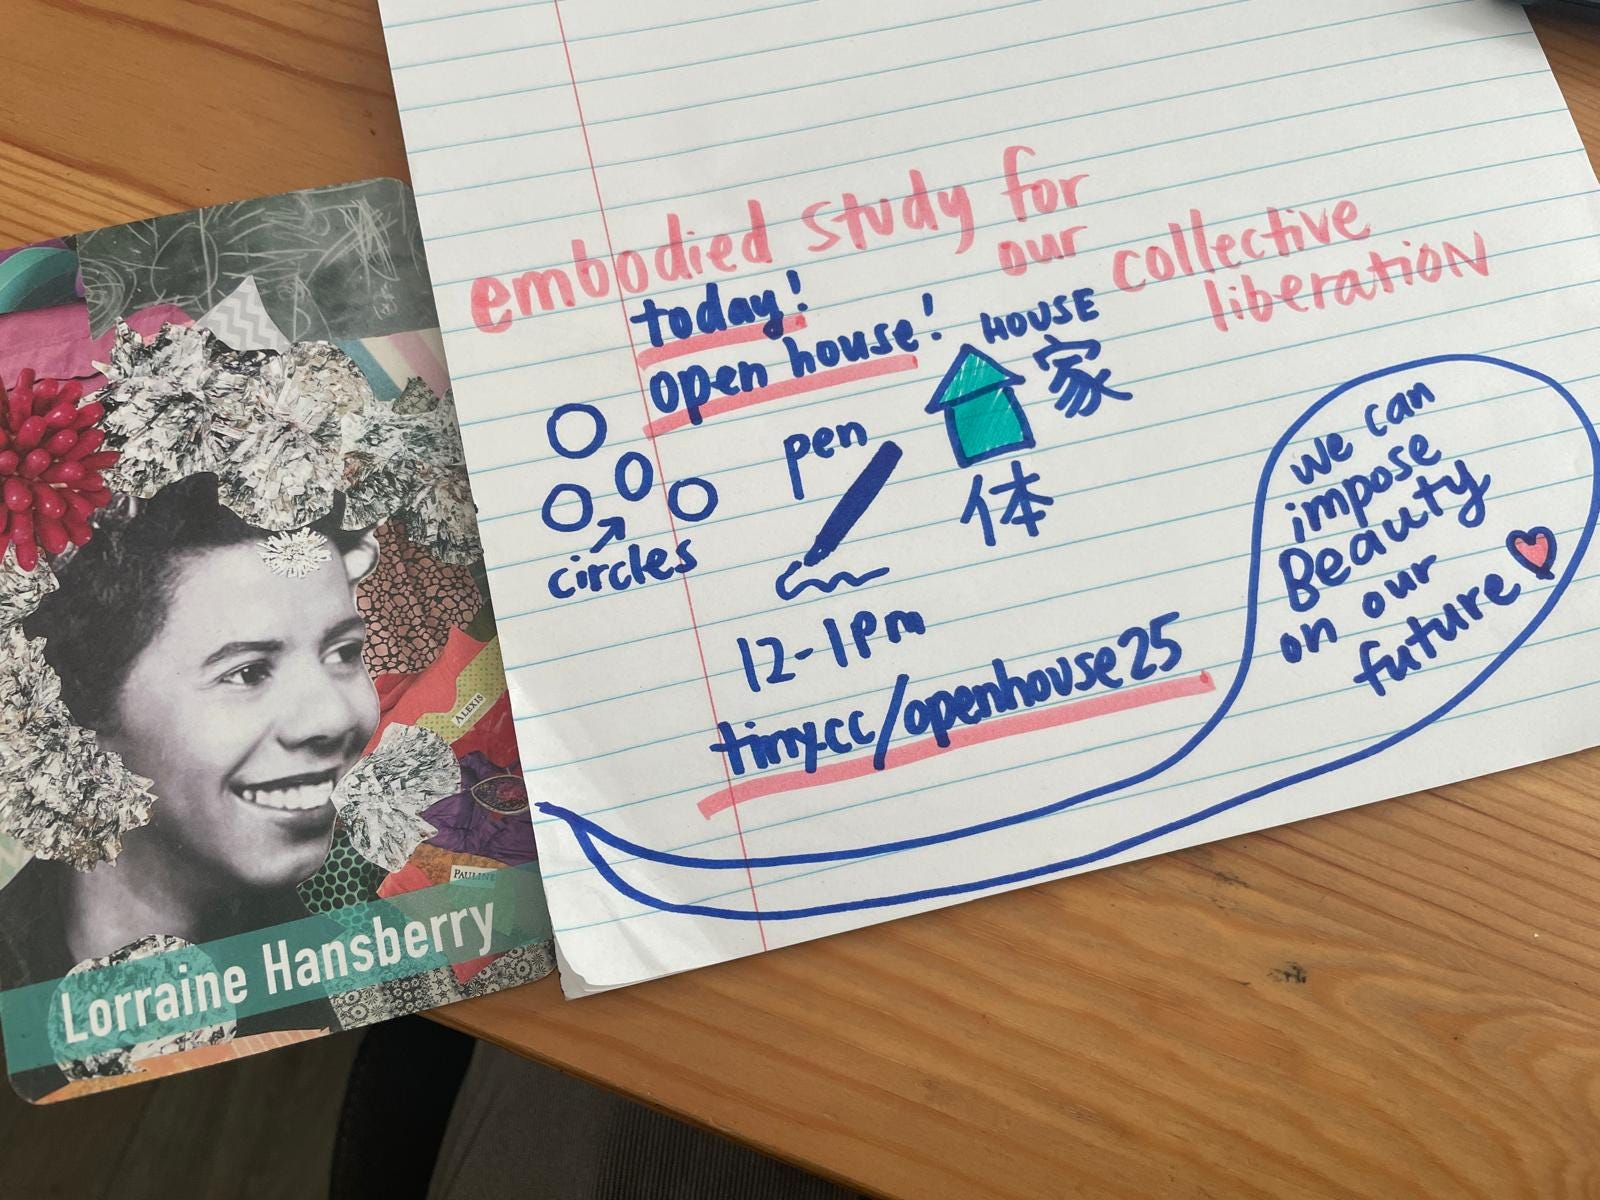 embodied study for
our collective
liberation
today!
open house!
HOUSE
家
体
pen
circles
12-1pm
tiny.cc/openhouse25
we can
impose
Beauty
on our
future
ALEXIS
PAULINE
Lorraine Hansberry